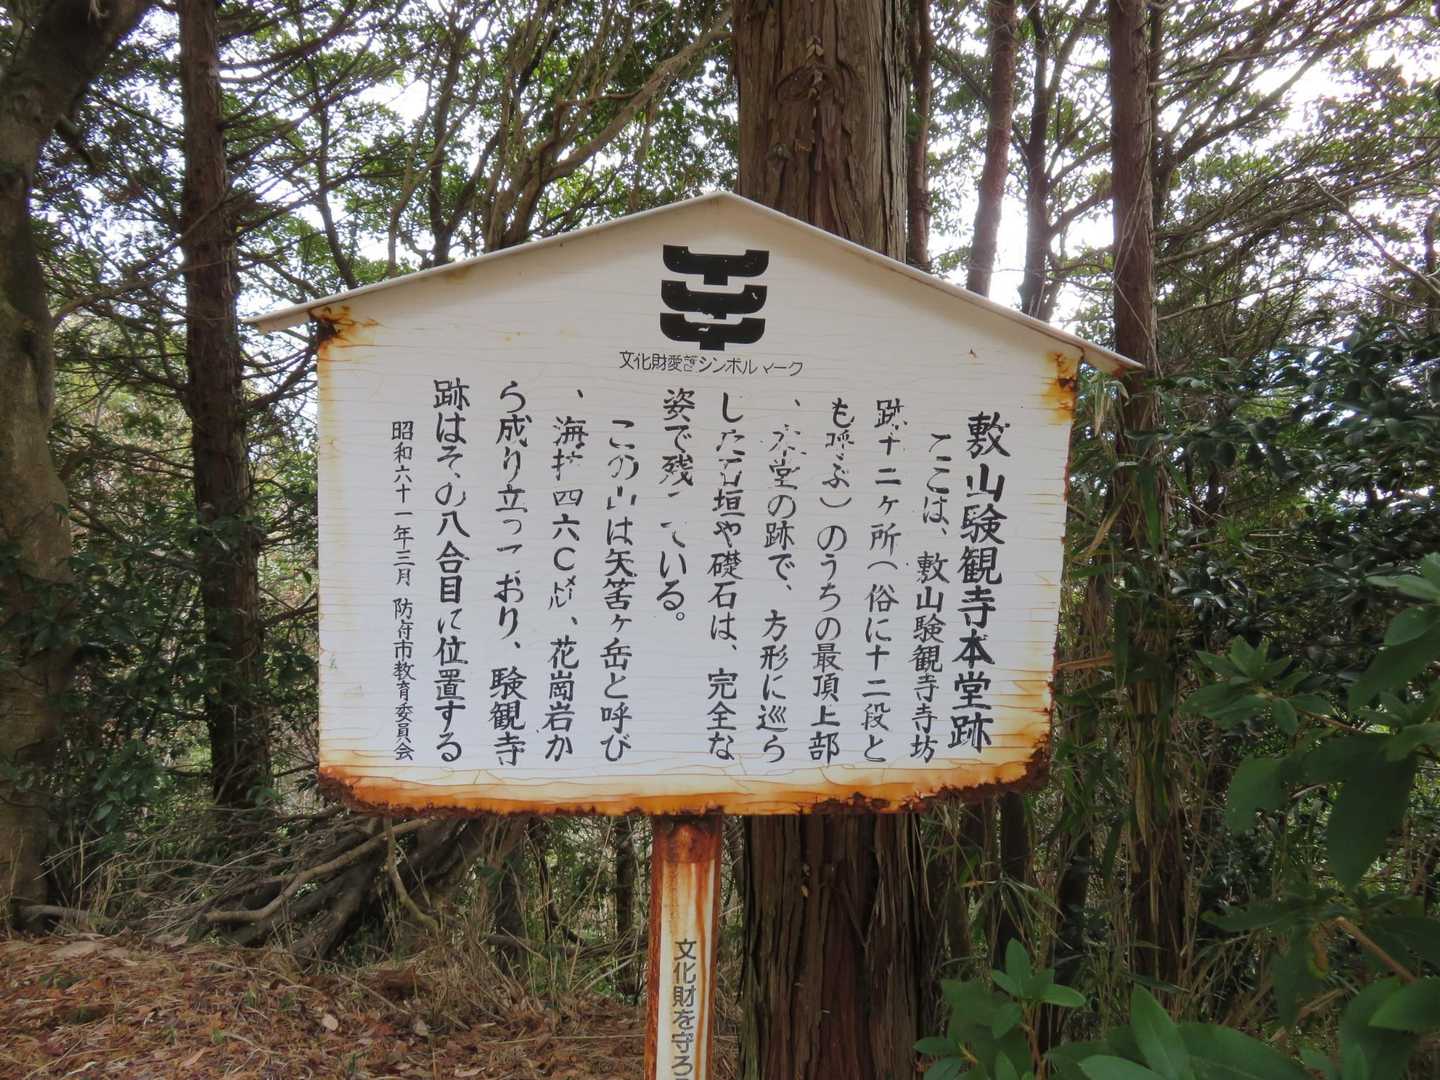 文化財愛護シンボルマーク
敷山験観寺本堂跡
ここは、敷山験観寺寺坊
跡十二ヶ所(俗に十二段と
も呼ぶ)のうちの最頂上部
、本堂の跡で、方形に巡ら
した石垣や礎石は、完全な
姿で残っている。
この山は矢筈ヶ岳と呼び
、海抜四六〇メートル、花崗岩か
ら成り立っており、験観寺
跡はその八合目に位置する
昭和六十一年三月 防府市教育委員会
文化財を守ろう